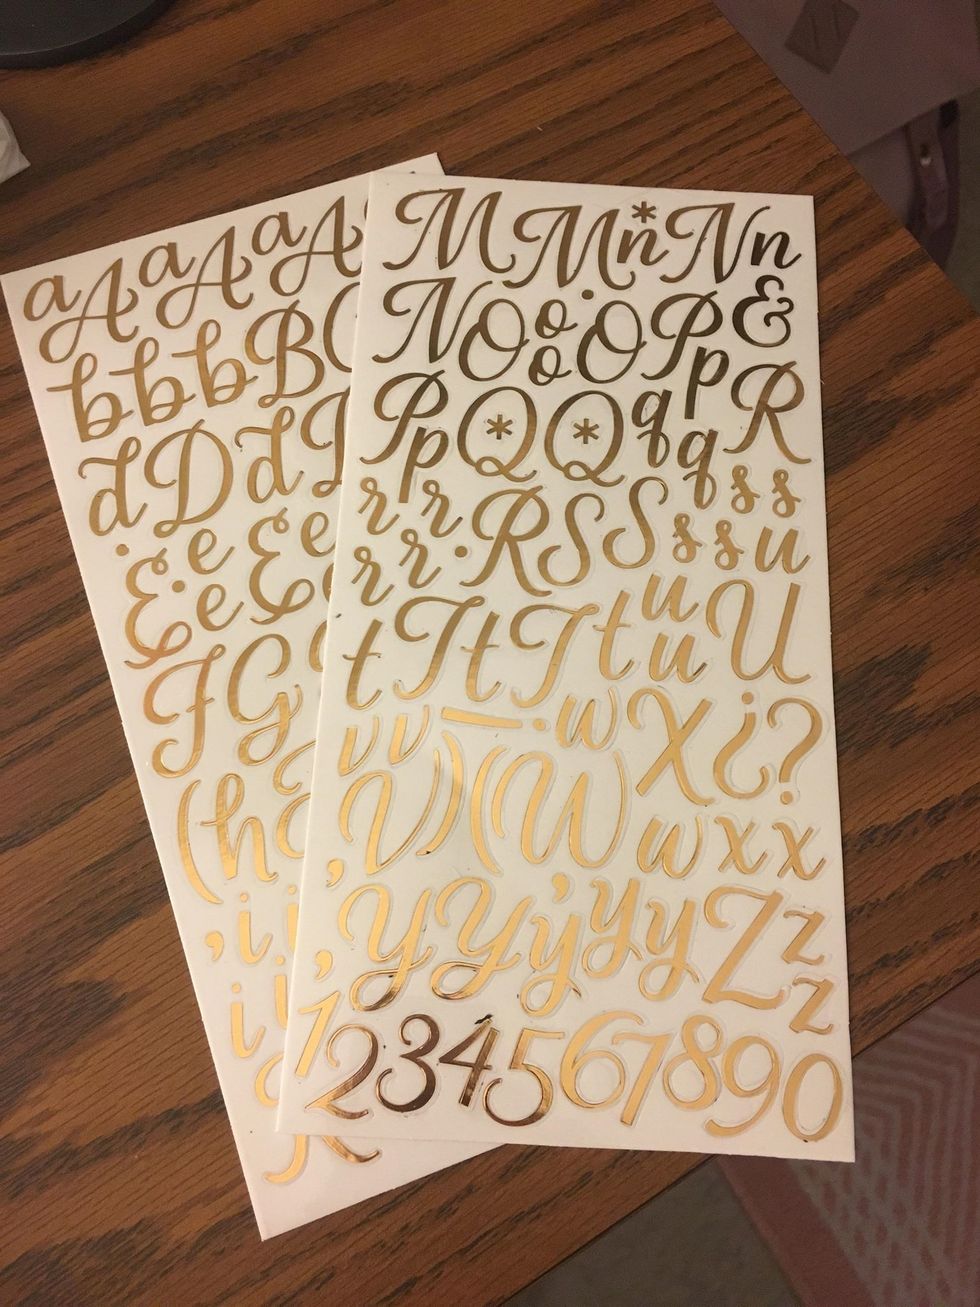 a A a A a A
b b b B
d D d
. E . e E e
e e
F G
( h
, i i
i
M M n * N n
N O o . O P &
o p
P p Q * Q * q q R
r r R S S s s
r r . s s u
t T t T t u u U
v v — . w X ¿ ?
, V ) ( W ) w x x
, Y Y ' y y y Z z
z
1 2 3 4 5 6 7 8 9 0